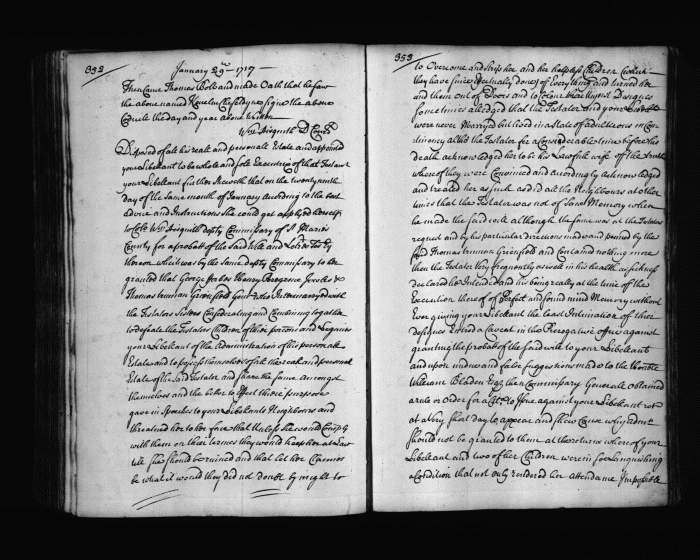 352
January 29th 1717
Then Came Thomas Bold and made Oath that he saw
the above named Kenelm Cheseldyne sign the above
Couele the day and year above Written
Wm Aisquith D Comry
Disposed of all his reall and personale Estate and appointed
your Libellant to be whole and sole Executrix of that Testamt
your Libellant further sheweth that on the twenty ninth
day of the same month of January according to the best
advice and Instructions she could get applyed herself
to Colo Wm Aisquith depty Commissary of St Maries
County for a probatt of the said Will and Letters Testry
thereon which was by the same depty Commissary to be
granted that George forbes Henry Peregrine Jowles &
Thomas truman Greenfield Gent who Intermarryed with
the Testators Sisters Confederating and Combining together
to defeate the Testators Children of their portions and Legacies
your Libellant of the Administration of his personale
Estate and to possess themselves of all the reall and personal
Estate of the said Testator and share the same amongst
themselves and the better to Effect their purpose
gave in Speeches to your Libellants Neighbours and
threatned her to her face that unless she would Comply
with them on their termes they would keep her at Law
till she should be ruined and that let her Chances
be what it would they did not doubt by might to
353
to Overcome and strip her and her helpless Children
they have since Effectually done of Everything and turned her
and them out of Doors and to Colour their unjust Designes
Sometimes alledged that the Testator and your Libellt
were never Marryed but lived in a state of adulterous or Con
timony altho the Testator for a Considerable time before his
death acknowledged her to be his Lawfull wife off the truth
whereof they were Convinced and accordingly acknowledged
and treated her as such as did all the Neighbours at other
times that the Testator was not of Sound Memory when
he made the said will although the same was at the Testators
request and by his particular directions made and penned by the
said Thomas truman Greenfield and Contained nothing more
then the Testator Very frequently as well in his health as sickness
declared he Intended and his being really at the time of the
Execution thereof of Perfect and sound mind Memory without
Ever giving your Libellant the Least Intimation of their
designes Entred a Caveat in the Prerogative office against
granting the probatt of the said will to your Libellant
and upon undue and false suggestions made to the Honoble
William Bladen Esqr then Commissary Generall obtained
a rule or Order for a to Issue against your Libellant
at a Very short day to appear and shew Cause why
should not be granted to them at the returne whereof your
Libellant and two of her Children were in
a Condition that not only rendered her attendance Impossible